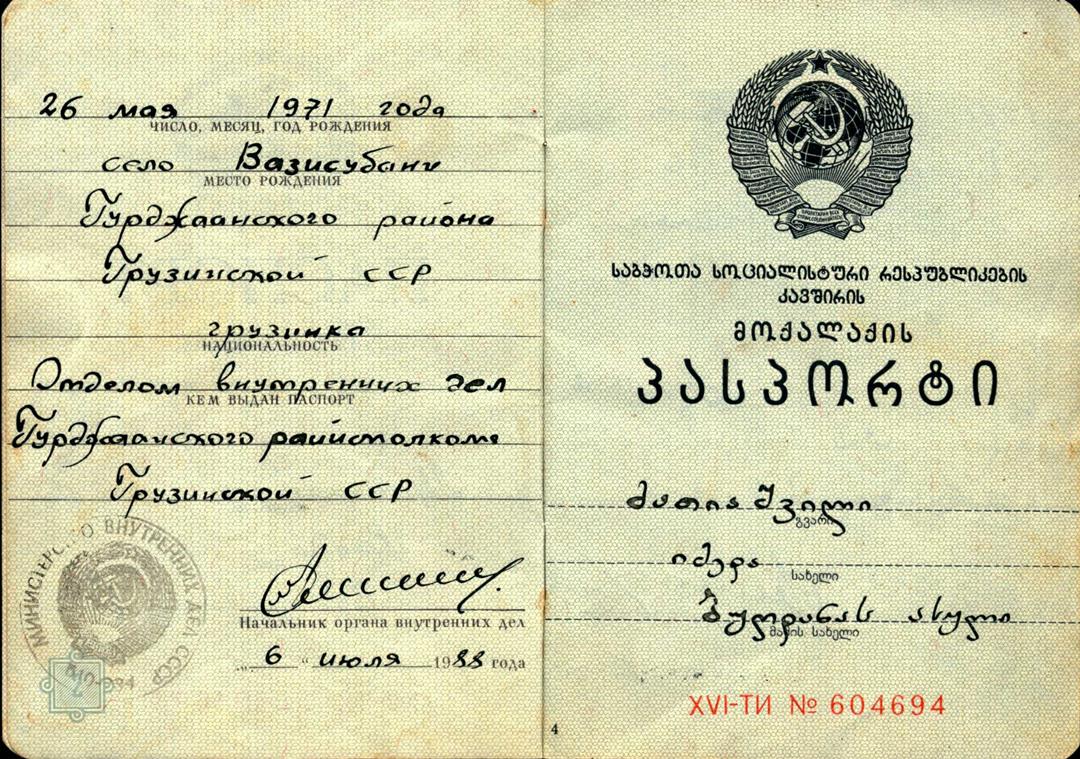 26 мая 1971 года
ЧИСЛО, МЕСЯЦ, ГОД РОЖДЕНИЯ
село Вазисубани
МЕСТО РОЖДЕНИЯ
Гурджаанского района
Грузинской ССР
грузинка
НАЦИОНАЛЬНОСТЬ
Отделом внутренних дел
КЕМ ВЫДАН ПАСПОРТ
Гурджаанского райисполкома
Грузинской ССР
МИНИСТЕРСТВО ВНУТРЕННИХ ДЕЛ СССР
Начальник органа внутренних дел
„ 6 “ июля 1988 года
საბჭოთა სოციალისტური რესპუბლიკების
კავშირის
მოქალაქის
პასპორტი
მათიაშვილი
გვარი
იმედა
სახელი
ასული
მამის სახელი
XVI-ТИ № 604694
4